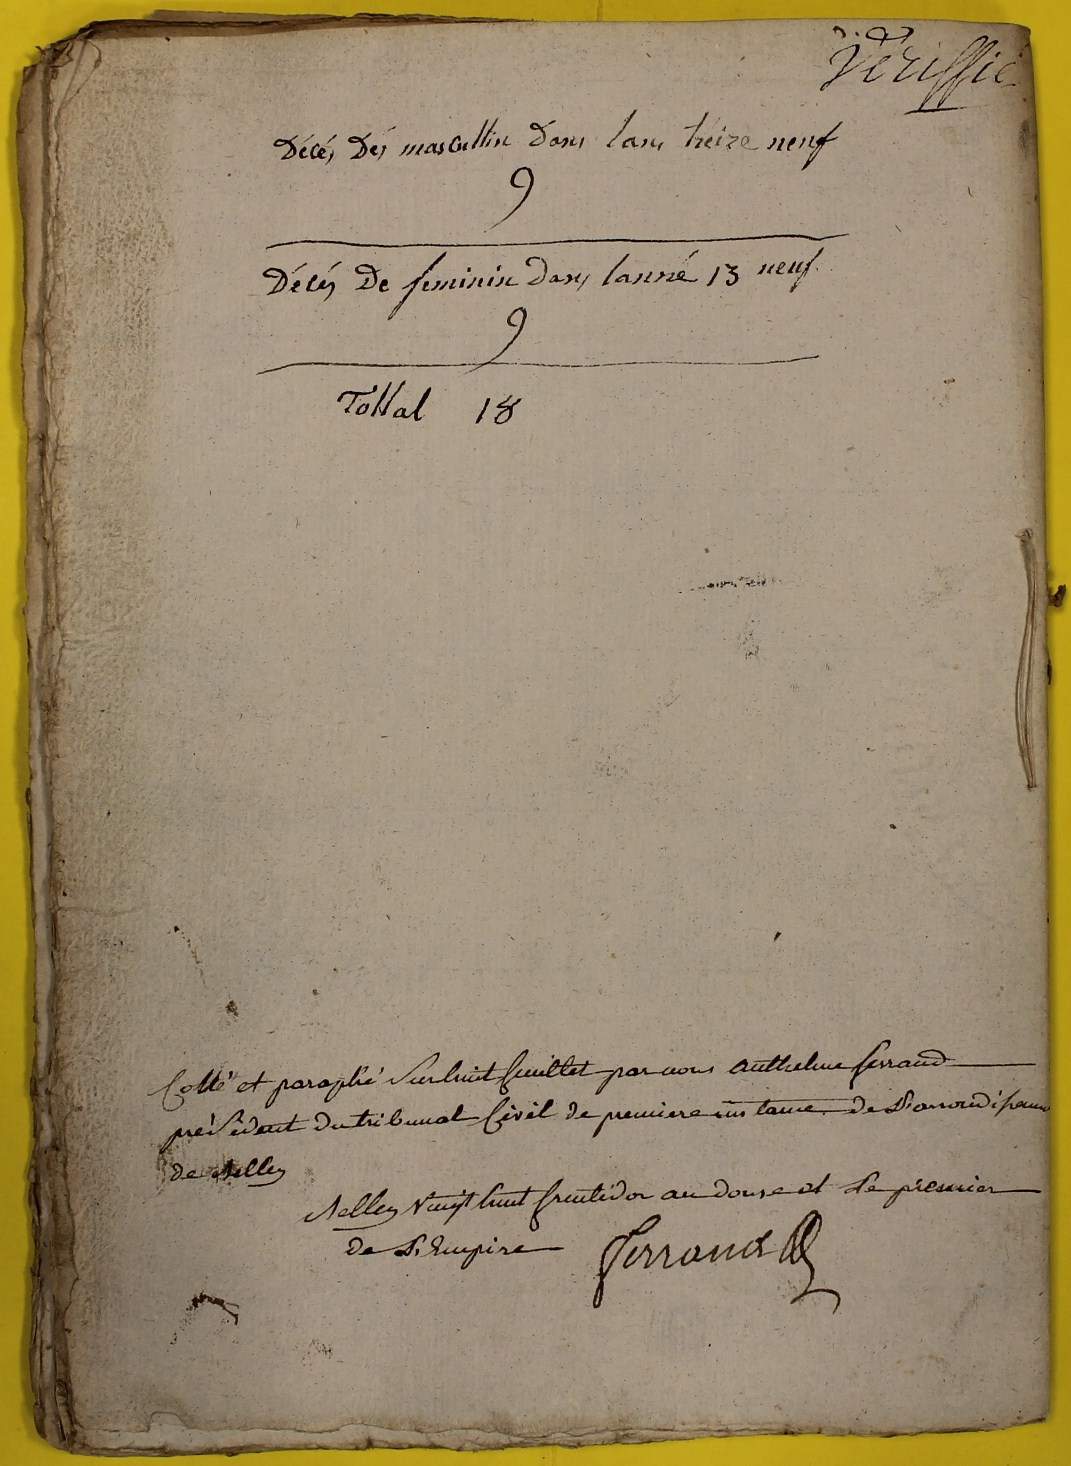 Veriffié
Décés Dés mascullin Dans lans treize neuf
9
Décés De feminin Dans lanné 13 neuf
9
Tottal 18
Cotté et paraphé sur huit feuillet par nous Anthelme ferrand
président du tribunal Civil de premiere instance de L'arrondissem
de Belley
Belley Vingt huit fructidor an douse et Le premier
de L'Empire ferrand